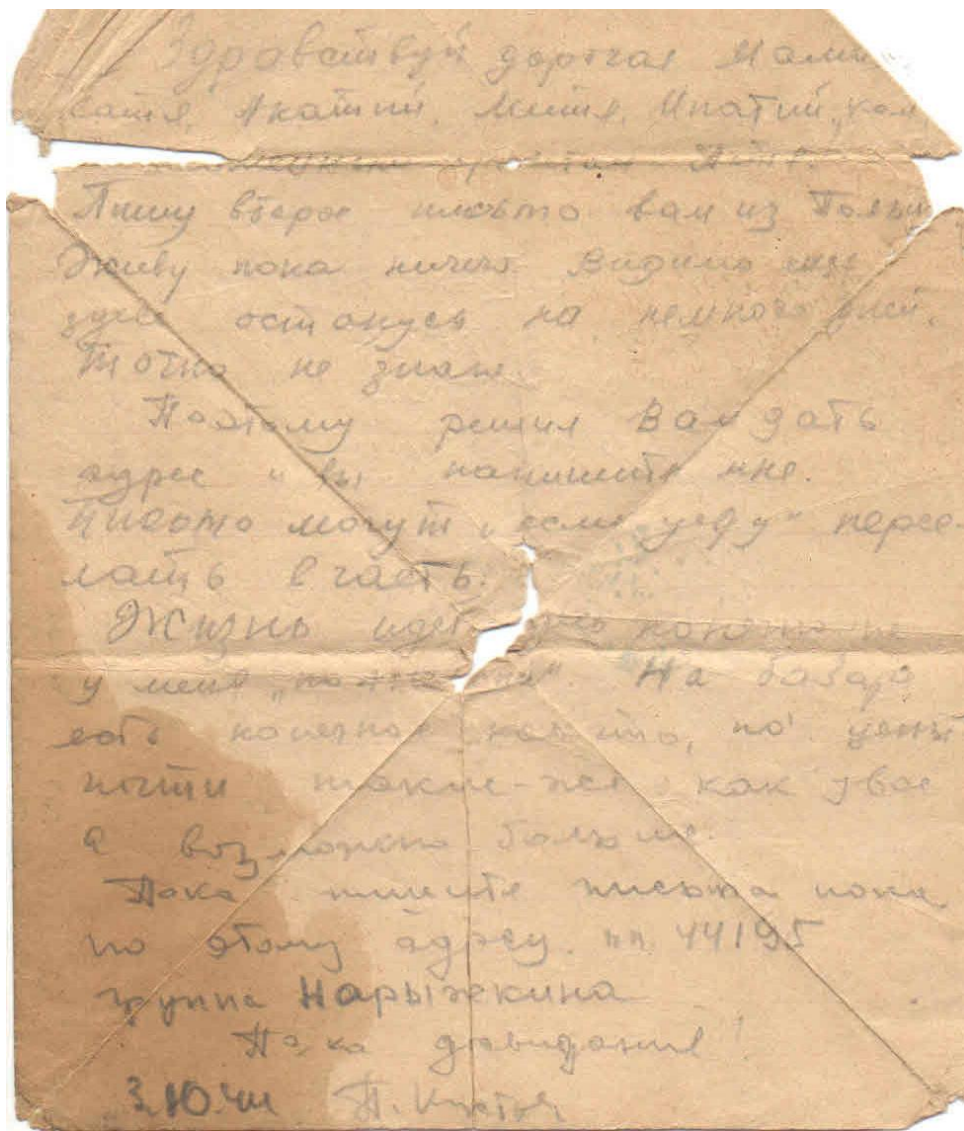 Здравствуй дорогая Мама
Катя, Акатий, Митя, Ипатий,
Пишу второе письмо вам из
Живу пока ничего Видимо еще
здесь останусь на немного дней.
Точно не знаю.
Поэтому решил Вам дать
адрес и вы напишите мне
письмо могут „если уеду“ пересе
лать в часть.
Жизнь идет конечно не
у меня На базаре
есть конечно но цены
почти такие-же как у вас
а возможно больше.
Пока пишите письма пока
по этому адресу. пп. 44195
группа Нарыжкина
Пока довидания!
3.10.44 П.